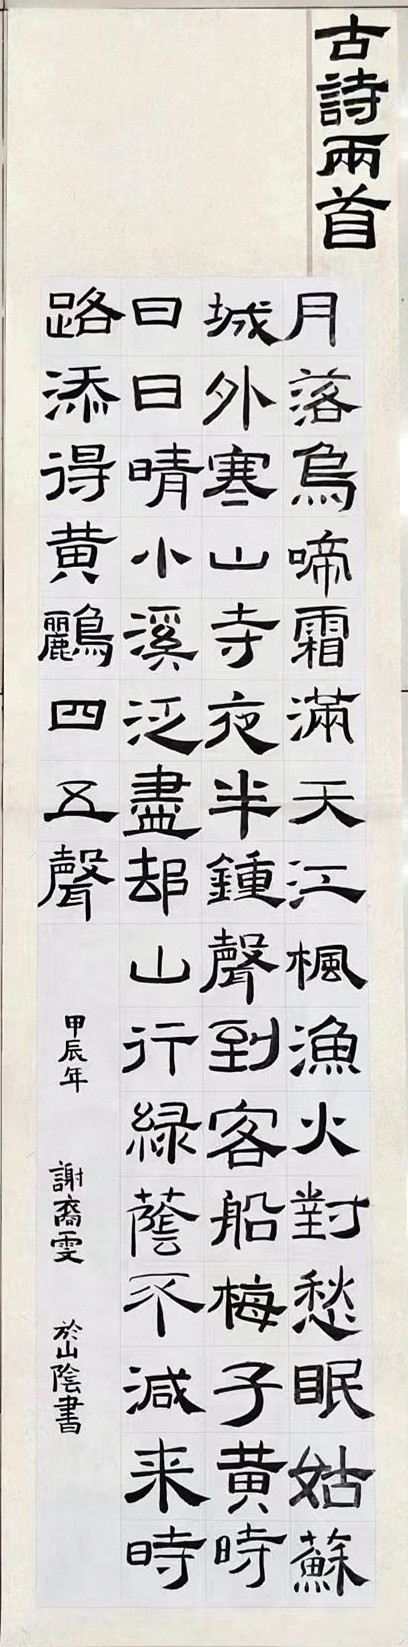 古詩兩首
月落烏啼霜滿天江楓漁火對愁眠姑蘇
城外寒山寺夜半鍾聲到客船梅子黃時
日日晴小溪泛盡却山行緑蔭不減来時
路添得黃鸝四五聲
甲辰年 謝裔雯 於山陰書